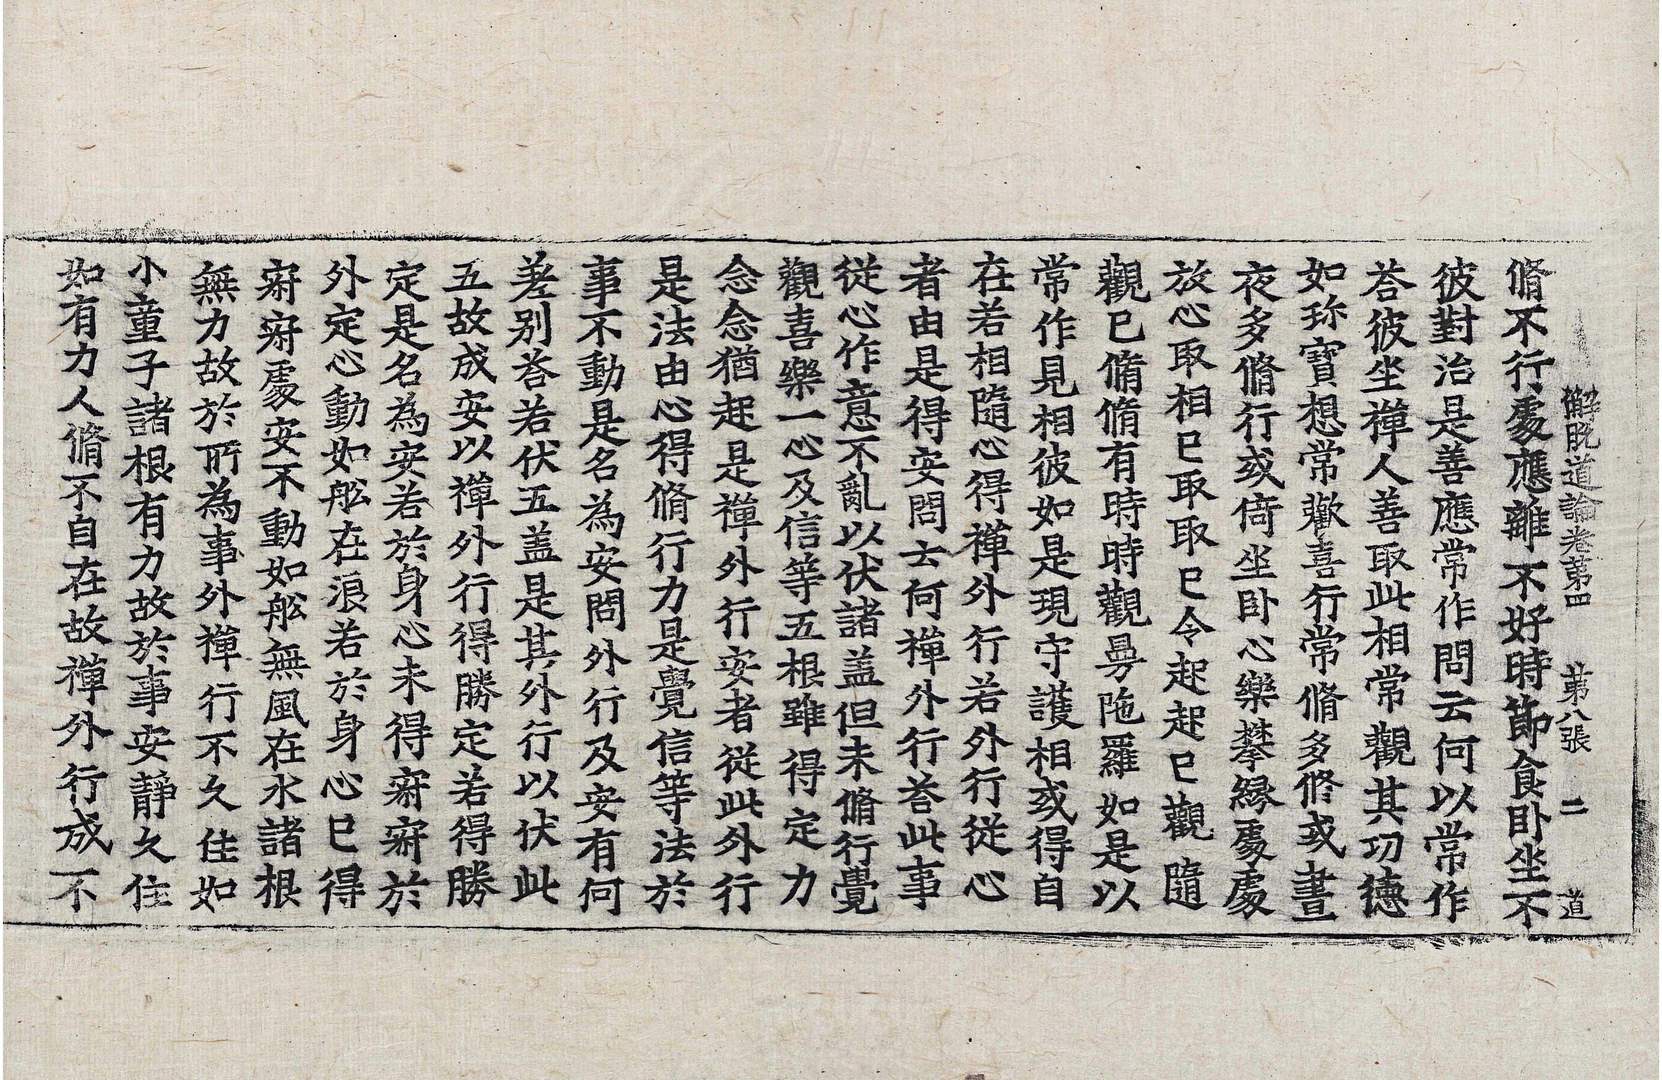 解脫道論卷第四　第八張　二　道
脩不行處應離不好時節食卧坐不
彼對治是善應常作問云何以常作
荅彼坐禪人善取此相常觀其功德
如珎寶想常歡喜行常脩多修或晝
夜多脩行或倚坐卧心樂攀緣處處
放心取相已取取已令起起已觀隨
觀已脩脩有時時觀曼陁羅如是以
常作見相彼如是現守護相或得自
在若相隨心得禪外行若外行從心
者由是得安問云何禪外行荅此事
從心作意不亂以伏諸盖但未脩行覺
觀喜樂一心及信等五根雖得定力
念念猶起是禪外行安者從此外行
是法由心得脩行力是覺信等法於
事不動是名為安問外行及安有何
差别荅若伏五盖是其外行以伏此
五故成安以禪外行得勝定若得勝
定是名為安若於身心未得寂寂於
外定心動如舩在浪若於身心已得
寂寂處安不動如舩無風在水諸根
無力故於所為事外禪行不久住如
小童子諸根有力故於事安靜久住
如有力人脩不自在故禪外行成不